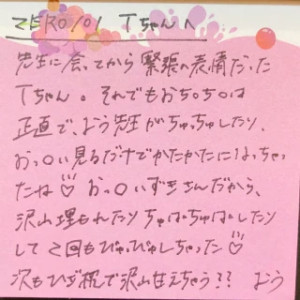 ZERO101 Tちゃんへ
先生に会ってから緊張の表情だった
Tちゃん。それでもおち○ち○は
正直で、よう先生がちゅっちゅしたり、
おっ○い見るだけでかたかたになっちゃっ
たね♡ おっ○いずきさんだから、
沢山埋もれたりちゅぱちゅぱしたり
して2回もぴゅっぴゅしちゃった♡
次もひざ枕で沢山甘えちゃう?? よう